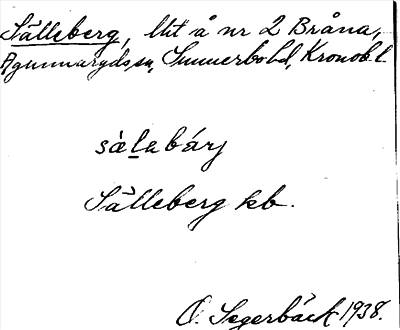 Sälleberg, lht å nr 2 Bråna,
Agunnarydssn, Sunnerbo hd, Kronob.l.
sälabärj
Sälleberg kb.
O. Segerbäck 1938.